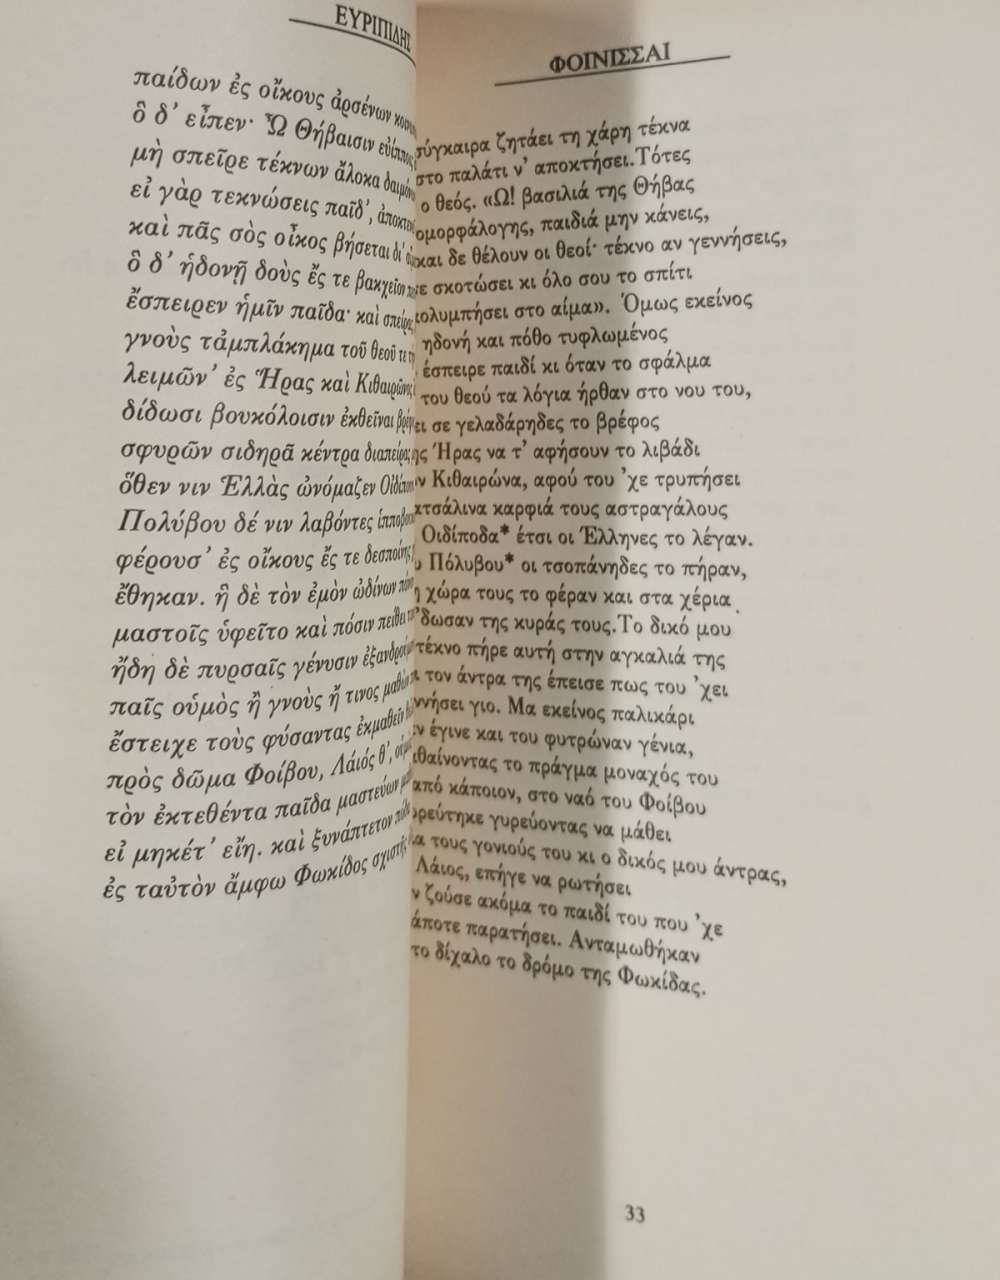 ΕΥΡΙΠΙΔΗΣ
παίδων ἐς οἴκους ἀρσένων
ὃ δ' εἶπεν· Ὦ Θήβαισιν εὐίπποις
μὴ σπεῖρε τέκνων ἄλοκα
εἰ γὰρ τεκνώσεις παῖδ',
καὶ πᾶς σὸς οἶκος βήσεται δι'
ὃ δ' ἡδονῇ δοὺς ἔς τε βακχεῖον
ἔσπειρεν ἡμῖν παῖδα· καὶ σπείρας
γνοὺς τἀμπλάκημα τοῦ θεοῦ τε
λειμῶν' ἐς Ἥρας καὶ Κιθαιρῶνος
δίδωσι βουκόλοισιν ἐκθεῖναι
σφυρῶν σιδηρᾶ κέντρα διαπείρας
ὅθεν νιν Ἑλλὰς ὠνόμαζεν
Πολύβου δέ νιν λαβόντες
φέρουσ' ἐς οἴκους ἔς τε δεσποίνης
ἔθηκαν. ἣ δὲ τὸν ἐμὸν ὠδίνων
μαστοῖς ὑφεῖτο καὶ πόσιν πείθει
ἤδη δὲ πυρσαῖς γένυσιν
παῖς οὑμὸς ἢ γνοὺς ἤ τινος μαθὼν
ἔστειχε τοὺς φύσαντας ἐκμαθεῖν
πρὸς δῶμα Φοίβου, Λάιός θ',
τὸν ἐκτεθέντα παῖδα μαστεύων
εἰ μηκέτ' εἴη. καὶ ξυνάπτετον
ἐς ταὐτὸν ἄμφω Φωκίδος σχιστῆς
ΦΟΙΝΙΣΣΑΙ
σύγκαιρα ζητάει τη χάρη τέκνα
στο παλάτι ν' αποκτήσει.Τότες
ο θεός. «Ω! βασιλιά της Θήβας
ομορφάλογης, παιδιά μην κάνεις,
και δε θέλουν οι θεοί· τέκνο αν γεννήσεις,
σκοτώσει κι όλο σου το σπίτι
στο αίμα». Όμως εκείνος
ηδονή και πόθο τυφλωμένος
έσπειρε παιδί κι όταν το σφάλμα
του θεού τα λόγια ήρθαν στο νου του,
σε γελαδάρηδες το βρέφος
Ήρας να τ' αφήσουν το λιβάδι
Κιθαιρώνα, αφού του 'χε τρυπήσει
καρφιά τους αστραγάλους
Οιδίποδα* έτσι οι Έλληνες το λέγαν.
Πόλυβου* οι τσοπάνηδες το πήραν,
χώρα τους το φέραν και στα χέρια
'δωσαν της κυράς τους.Το δικό μου
τέκνο πήρε αυτή στην αγκαλιά της
τον άντρα της έπεισε πως του 'χει
γιο. Μα εκείνος παλικάρι
έγινε και του φυτρώναν γένια,
το πράγμα μοναχός του
από κάποιον, στο ναό του Φοίβου
γυρεύοντας να μάθει
τους γονιούς του κι ο δικός μου άντρας,
Λάιος, επήγε να ρωτήσει
ζούσε ακόμα το παιδί του που 'χε
παρατήσει. Ανταμωθήκαν
το δίχαλο το δρόμο της Φωκίδας.
33